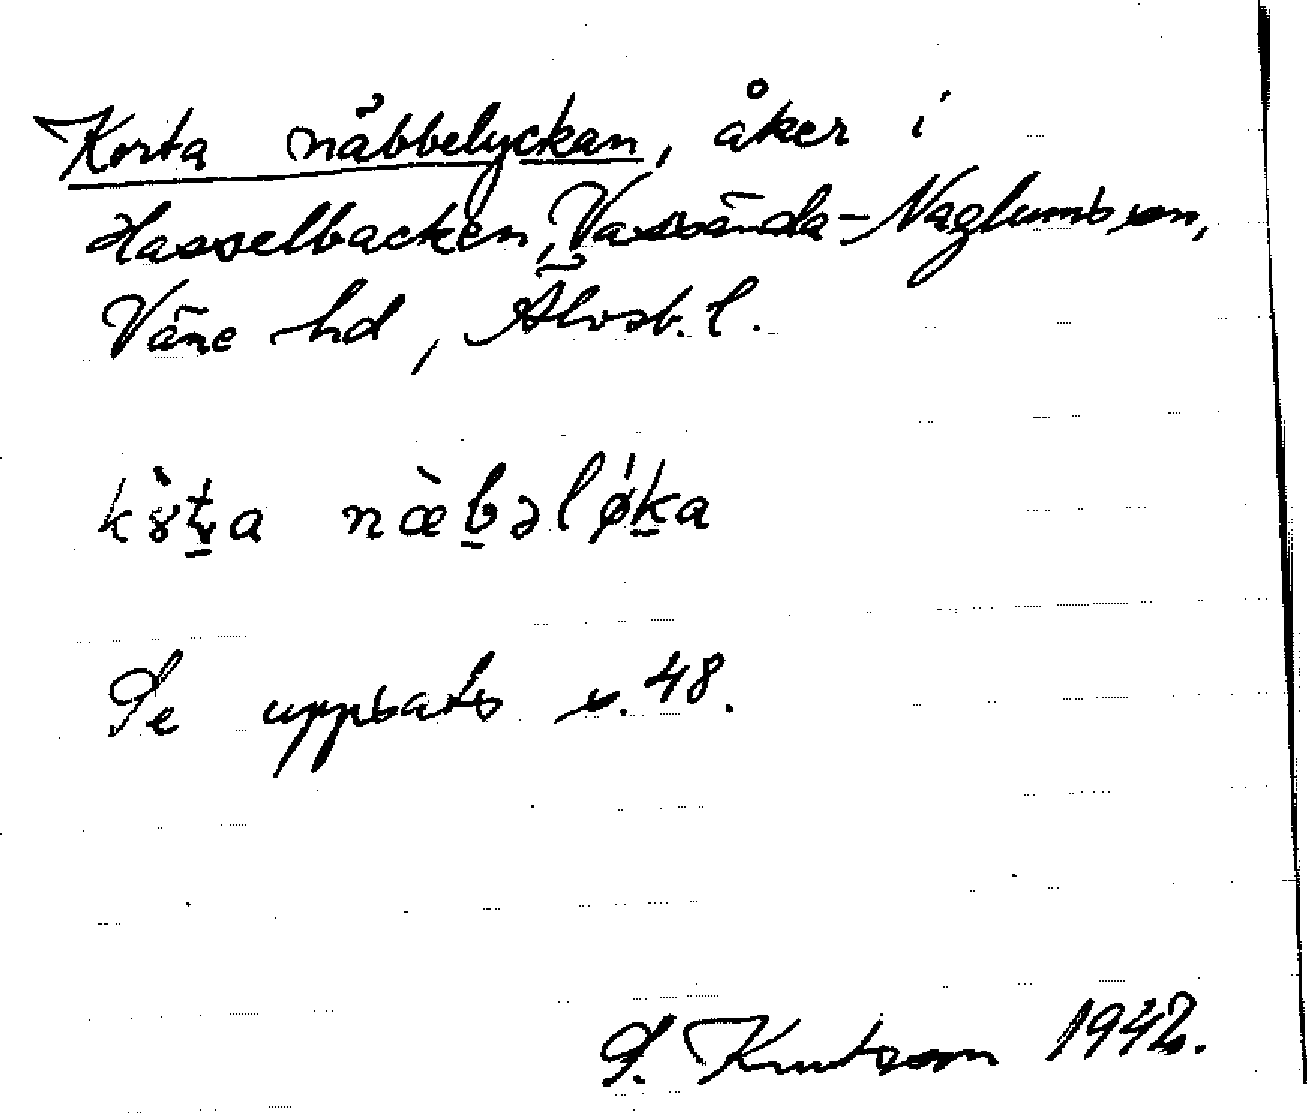 Korta näbbelyckan, åker i
Hasselbacken, Vassända-Naglums sn,
Väne hd, Älvsb. l.
kò̤ṯa næ̀b̲əlǿk̲a
Se uppsats s. 48.
S. Knutsson 1942.